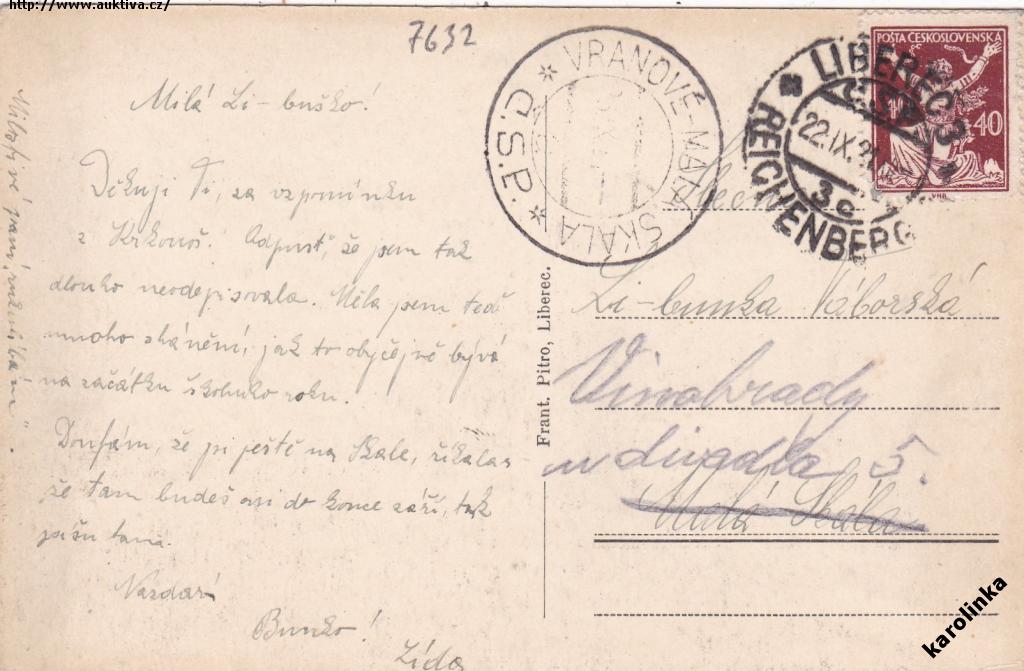 http://www.auktiva.cz/
7632
Milá Li-buško!
Děkuji Ti, za vzpomínku
z Krkonoš. Odpusť, že jsem tak
dlouho neodepisovala. Měla jsem teď
mnoho shánění, jak to obyčejně bývá
na začátku školního roku.
Doufám, že jsi ještě na Skále, říkalas
že tam budeš asi do konce září, tak
píšu tam.
Nazdar!
Bunko!
Lída
VRANOVÉ-MALÁ SKÁLA
Č.S.P.
LIBEREC 3
ČSP
22.IX.
3c
REICHENBERG
POŠTA ČESKOSLOVENSKÁ
40
Frant. Pitro, Liberec.
Slečna
Li-bunka Táborská
Vinohrady
u divadla 5.
Malá Skála
karolinka